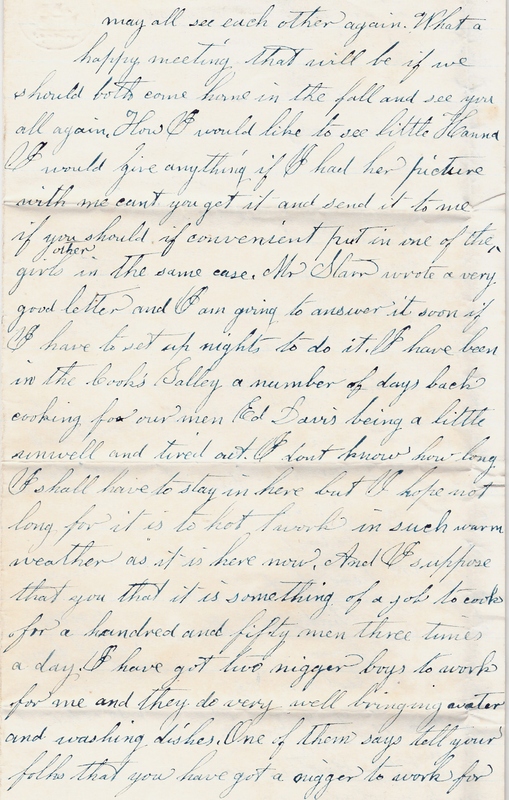 may all see each other again. What a
happy meeting that will be if we
should both come home in the fall and see you
all again. How I would like to see little Hanna
I would give anything if I had her picture
with me cant you get it and send it to me
if you should, if convenient put in one of the
other
girls in the same case. Mr Starr wrote a very
good letter and I am going to answer it soon if
I have to set up nights to do it. I have been
in the Cook's Galley a number of days back
cooking for our men Ed Davis being a little
unwell and tired out. I dont know how long
I shall have to stay in here but I hope not
long for it is to hot work in such warm
weather as it is here now. And I suppose
that you that it is something of a job to cook
for a hundred and fifty men three times
a day. I have got two nigger boys to work
for me and they do very well bringing water
and washing dishes. One of them says tell your
folks that you have got a nigger to work for